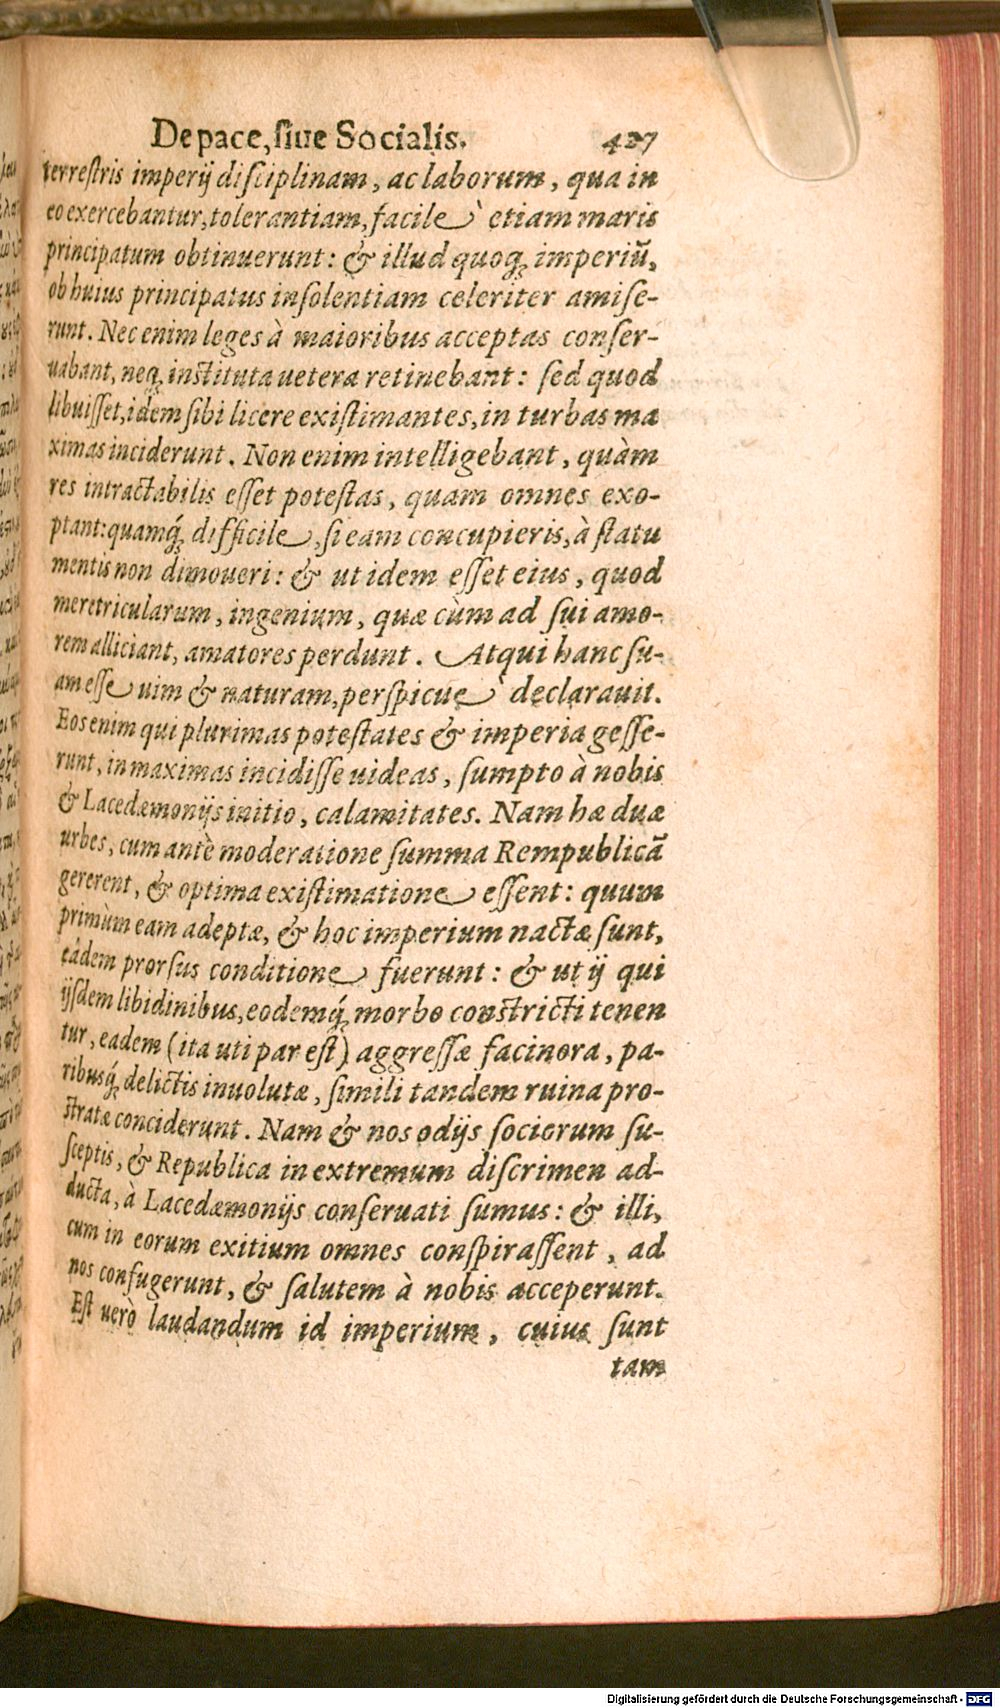 De pace, siue Socialis. 427
terrestris imperij disciplinam, ac laborum, qua in
eo exercebantur, tolerantiam, facilè etiam maris
principatum obtinuerunt: & illud quoq; imperiũ,
ob huius principatus insolentiam celeriter amise-
runt. Nec enim leges à maioribus acceptas conser-
uabant, neq; instituta uetera retinebant: sed quod
libuisset, idem sibi licere existimantes, in turbas ma
ximas inciderunt. Non enim intelligebant, quàm
res intractabilis esset potestas, quam omnes exo-
ptant: quamq́; difficile, si eam concupieris, à statu
mentis non dimoueri: & ut idem esset eius, quod
meretricularum, ingenium, quæ cùm ad sui amo-
rem alliciant, amatores perdunt. Atqui hanc su-
am esse uim & naturam, perspicuè declarauit.
Eos enim qui plurimas potestates & imperia gesse-
runt, in maximas incidisse uideas, sumpto à nobis
& Lacedæmonijs initio, calamitates. Nam hæ duæ
urbes, cum antè moderatione summa Rempublicã
gererent, & optima existimatione essent: quum
primùm eam adeptæ, & hoc imperium nactæ sunt,
eâdem prorsus conditione fuerunt: & ut ij qui
ijsdem libidinibus, eodemq́; morbo constricti tenen
tur, eadem (ita uti par est) aggressæ facinora, pa-
ribusq́; delictis inuolutæ, simili tandem ruina pro-
stratæ conciderunt. Nam & nos odijs sociorum su-
sceptis, & Republica in extremum discrimen ad-
ducta, à Lacedæmonijs conseruati sumus: & illi,
cum in eorum exitium omnes conspirassent, ad
nos confugerunt, & salutem à nobis acceperunt.
Est uerò laudandum id imperium, cuius sunt
tam
Digitalisierung gefördert durch die Deutsche Forschungsgemeinschaft - DFG